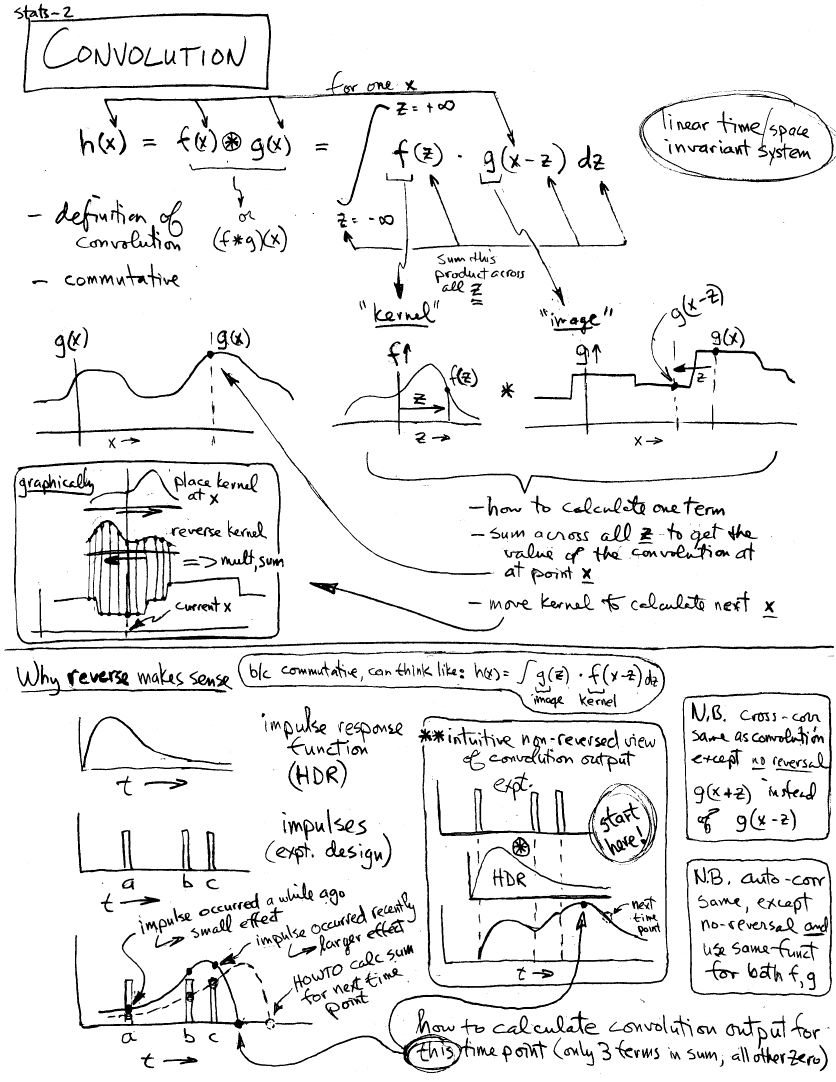 stats-2
CONVOLUTION
for one x
h(x) = f(x) ⊛ g(x) = ∫ f(z) · g(x-z) dz
z = +∞
z = -∞
linear time/space
invariant system
- definition of
convolution
- commutative
or
(f*g)(x)
sum this
product across
all z
"kernel"
"image"
g(x-z)
g(x)
g(x)
x →
f↑
f(z)
z
z →
*
g↑
g(x)
z
x →
graphically
place kernel
at x
reverse kernel
=> mult, sum
current x
- how to calculate one term
- sum across all z to get the
value of the convolution at
at point x
- move kernel to calculate next x
Why reverse makes sense
b/c commutative, can think like: h(x) = ∫ g(z) · f(x-z) dz
image kernel
impulse response
function
(HDR)
t →
impulses
(expt. design)
a b c
t →
impulse occurred a while ago
↳ small effect
impulse occurred recently
↳ larger effect
HOWTO calc sum
for next time
point
a b c
t →
** intuitive non-reversed view
of convolution output
expt.
start
here!
⊛
HDR
next
time
point
t →
N.B. cross-corr
same as convolution
except no reversal
g(x+z) instead
of g(x-z)
N.B. auto-corr
same, except
no-reversal and
use same funct
for both f, g
how to calculate convolution output for
this time point (only 3 terms in sum, all other zero)